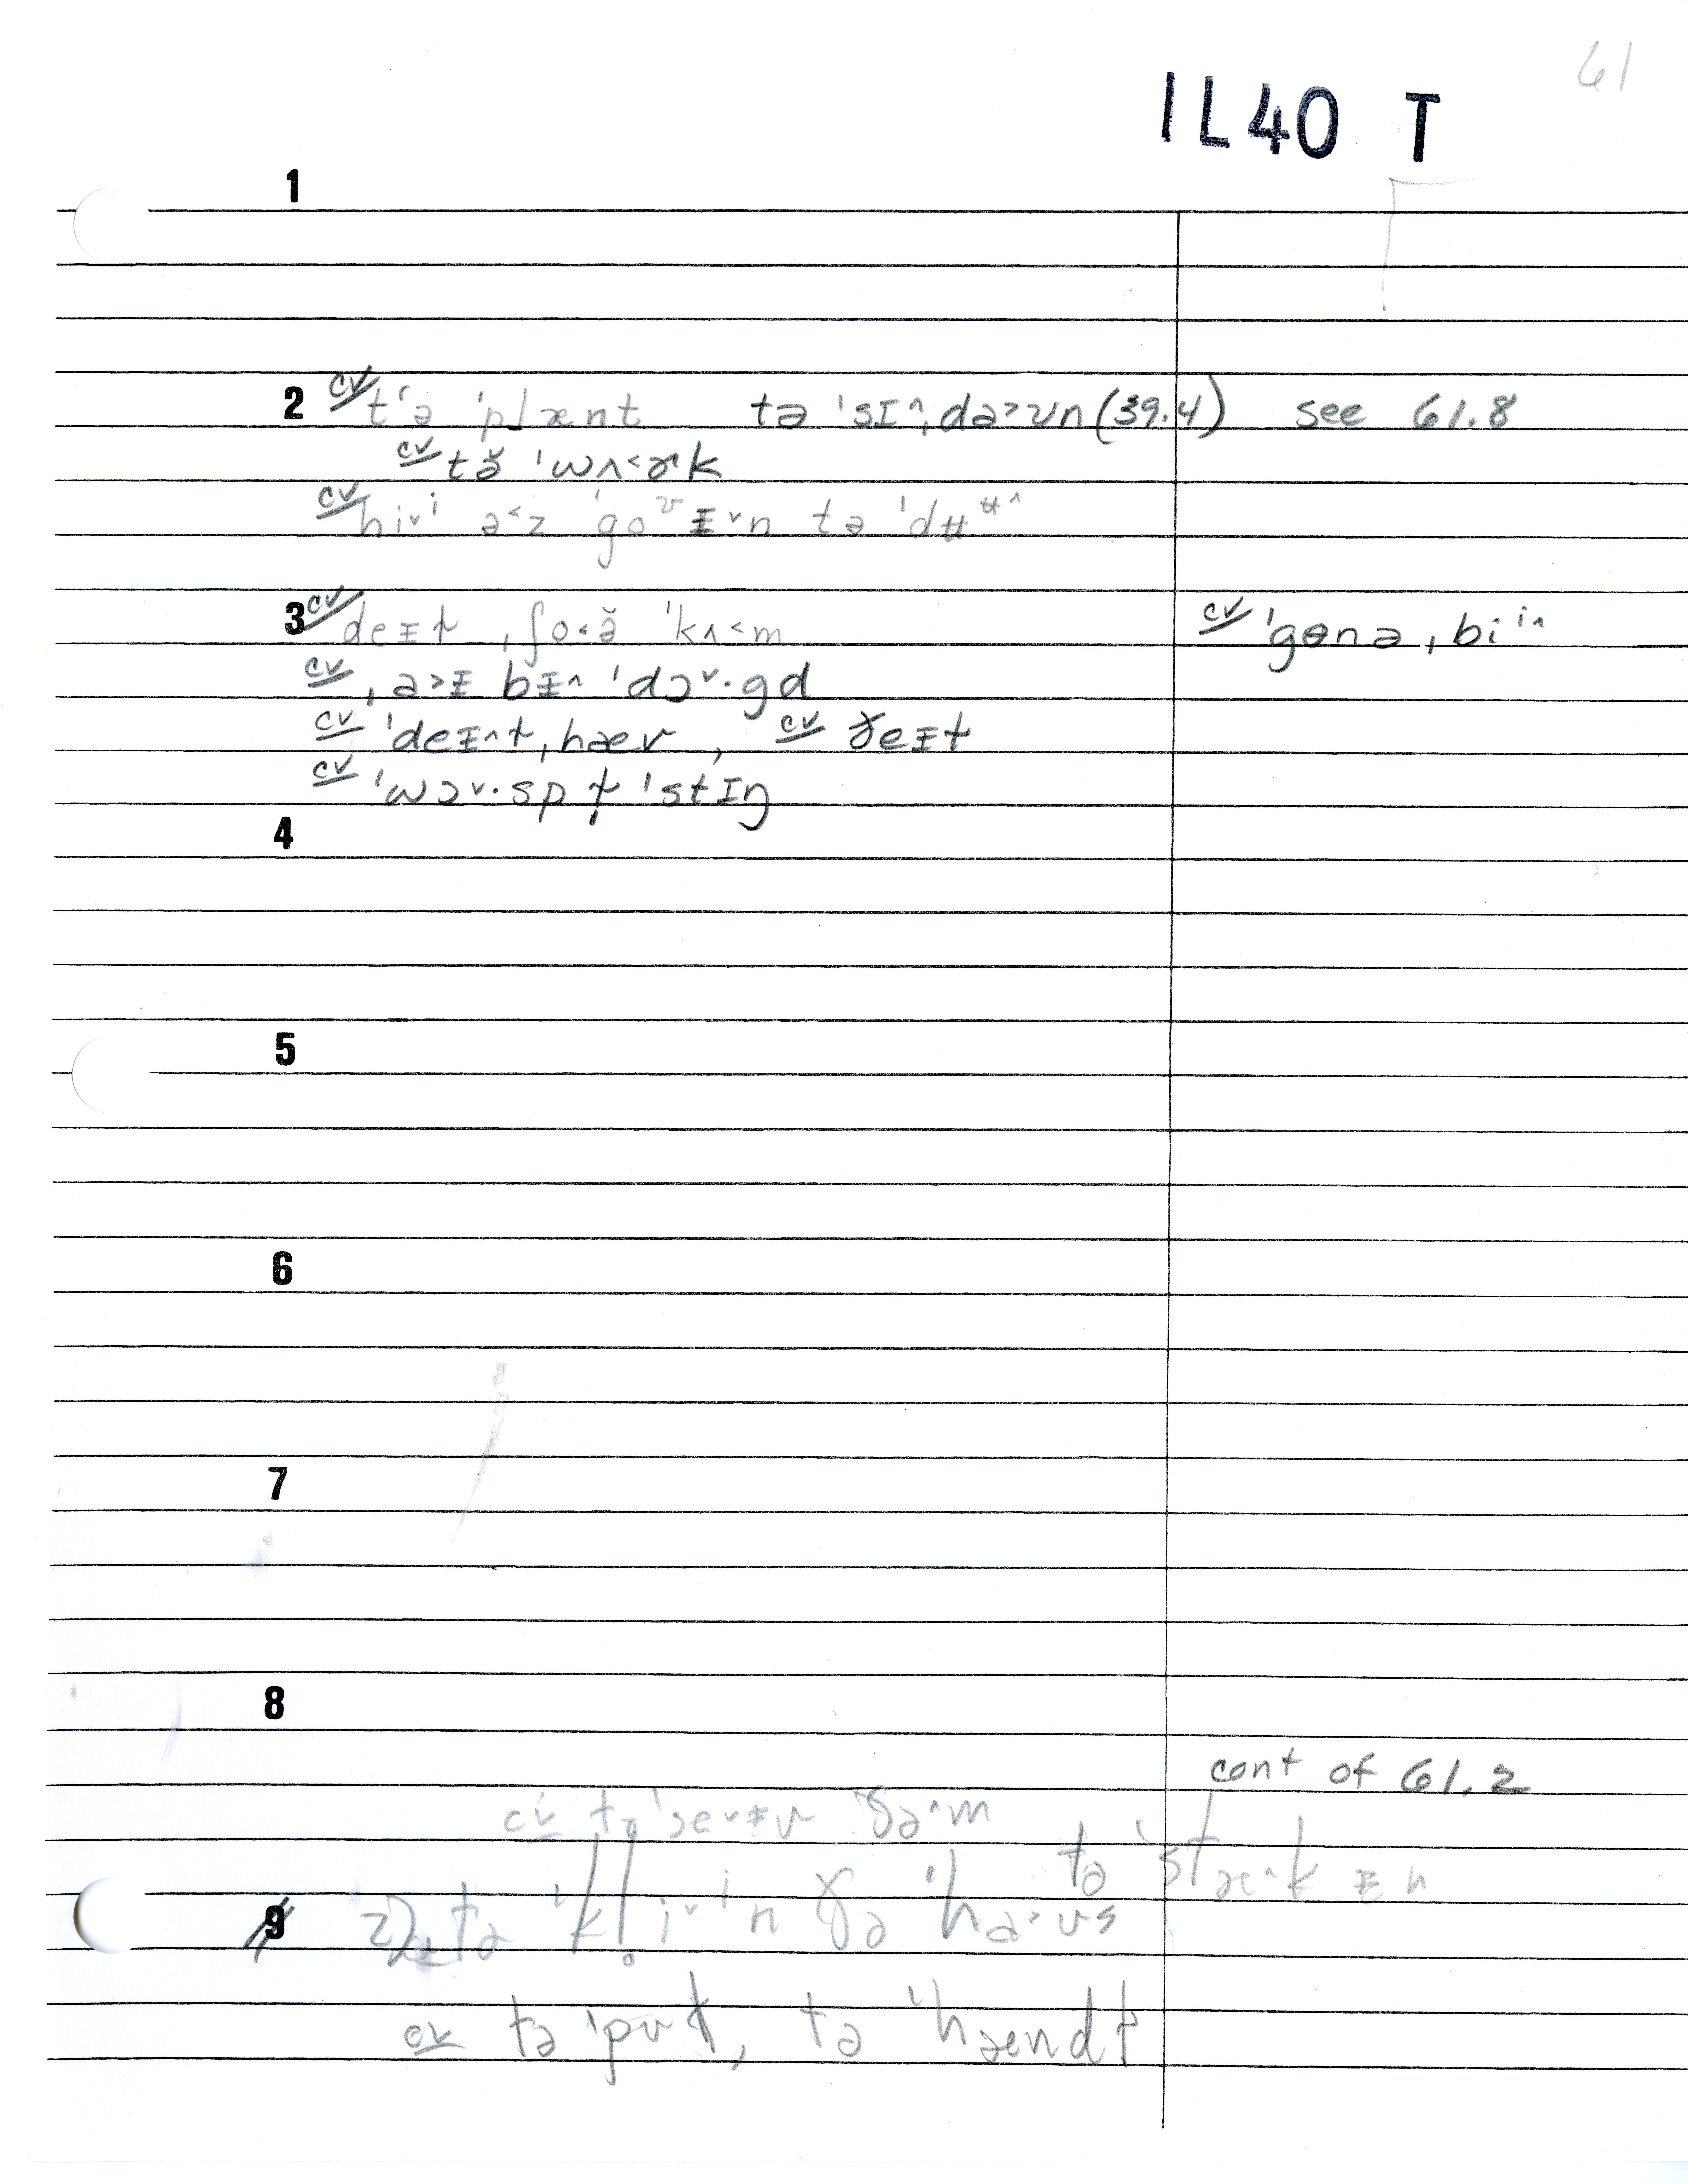 61
1L40 T
1
2 cv tʻə ˈplænt tə ˈsɪ^ˌda>ʊn (39.4) see 61.8
cv tə̆ ˈwʌ<ɚk
cv hiᵛⁱ ə<z ˈgoᶷɪ̵ᵛn tə ˈdʉᶶ^
3 cv deɪ̵t ˌʃo<ə̆ ˈkʌ<m cv ˈgɵnəˌbiⁱ^
cv ˌa>ɪ̵ bɪ̵^ ˈdɔᵛ·gd
cv ˈdeɪ̵^tˌhær, cv ɤeɪ̵t
cv ˈwɔᵛ·sp ˈstɪŋ
4
5
6
7
8
cont of 61.2
cv tə ˈseᵛɪ̵v ðə^m
tə ˈstæ·k ɪ̵n
9 2) tə ˈkl̥iᵛⁱn ðə ˈha>ʊs
cv tə ˈpʊt, tə ˈhændt